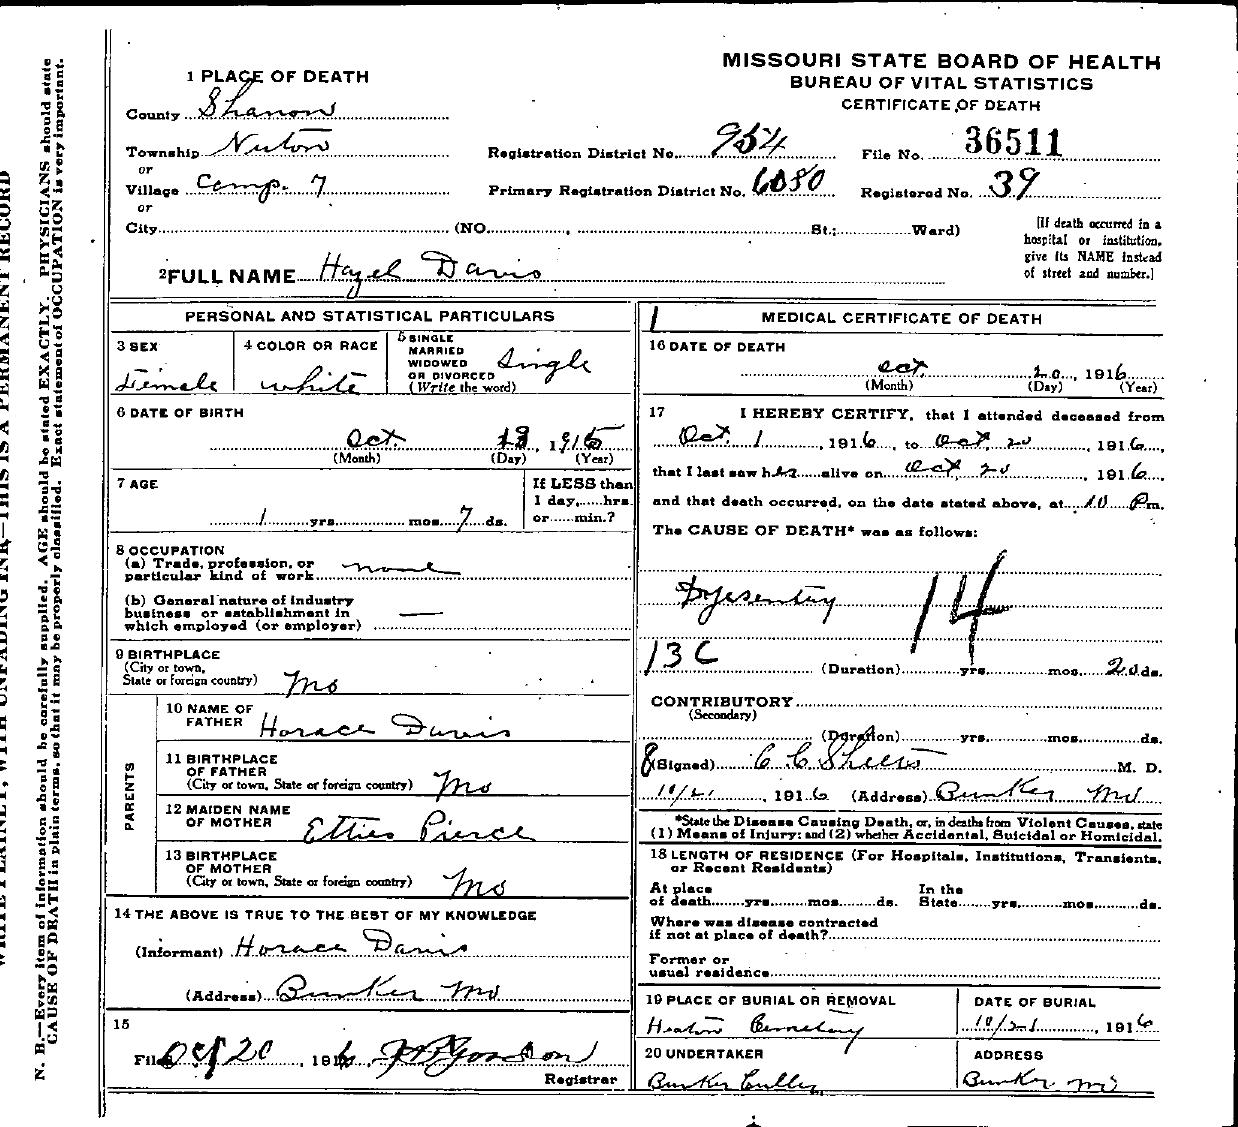 MISSOURI STATE BOARD OF HEALTH
BUREAU OF VITAL STATISTICS
CERTIFICATE OF DEATH
1 PLACE OF DEATH
County Shanon
Township Nuton
or
Village Camp. 7
or
City (NO. , St.; Ward)
Registration District No. 954
File No. 36511
Primary Registration District No. 6080
Registered No. 39
[If death occurred in a
hospital or institution,
give its NAME instead
of street and number.]
2 FULL NAME Hazel Davis
PERSONAL AND STATISTICAL PARTICULARS
3 SEX
Female
4 COLOR OR RACE
white
5 SINGLE
MARRIED
WIDOWED
OR DIVORCED
(Write the word)
Single
6 DATE OF BIRTH
Oct 13, 1915
(Month) (Day) (Year)
7 AGE
1 yrs. mos. 7 ds.
If LESS than
1 day, hrs.
or min.?
8 OCCUPATION
(a) Trade, profession, or
particular kind of work none
(b) General nature of industry
business or establishment in
which employed (or employer) —
9 BIRTHPLACE
(City or town,
State or foreign country) Mo
PARENTS
10 NAME OF
FATHER Horace Davis
11 BIRTHPLACE
OF FATHER
(City or town, State or foreign country) Mo
12 MAIDEN NAME
OF MOTHER Etties Pierce
13 BIRTHPLACE
OF MOTHER
(City or town, State or foreign country) Mo
14 THE ABOVE IS TRUE TO THE BEST OF MY KNOWLEDGE
(Informant) Horace Davis
(Address) Bunker Mo
15
Filed Oct 20, 1916
Registrar
1 MEDICAL CERTIFICATE OF DEATH
16 DATE OF DEATH
Oct. 20, 1916
(Month) (Day) (Year)
17 I HEREBY CERTIFY, that I attended deceased from
Oct. 1, 1916, to Oct, 20, 1916,
that I last saw her alive on Oct, 20, 1916,
and that death occurred, on the date stated above, at 10 Pm.
The CAUSE OF DEATH* was as follows:
Dysentery 14
13C (Duration) yrs. mos. 20 ds.
CONTRIBUTORY
(Secondary)
(Duration) yrs. mos. ds.
8 (Signed) C C M. D.
10/21, 1916 (Address) Bunker Mo
*State the Disease Causing Death, or, in deaths from Violent Causes, state
(1) Means of Injury; and (2) whether Accidental, Suicidal or Homicidal.
18 LENGTH OF RESIDENCE (For Hospitals, Institutions, Transients,
or Recent Residents)
At place
of death yrs. mos. ds.
In the
State yrs. mos. ds.
Where was disease contracted
if not at place of death?
Former or
usual residence
19 PLACE OF BURIAL OR REMOVAL
Heaton Cemetery
DATE OF BURIAL
10/21, 1916
20 UNDERTAKER
Bunker Culler
ADDRESS
Bunker Mo
WRITE PLAINLY, WITH UNFADING INK—THIS IS A PERMANENT RECORD
N. B.—Every item of information should be carefully supplied. AGE should be stated EXACTLY. PHYSICIANS should state
CAUSE OF DEATH in plain terms, so that it may be properly classified. Exact statement of OCCUPATION is very important.